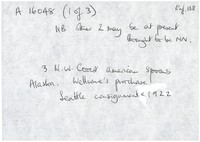 A 16048 (1 of 3)
NB Other 2 may be at present
thought to be NN.
3 N.W. Coast American Spoons
Alaska. Wellcome's purchase
Seattle consignment 1922